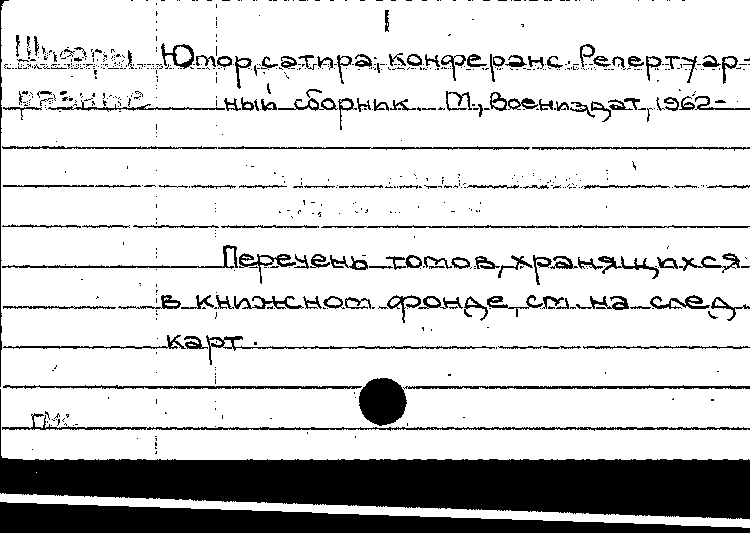 I
Шифры Юмор, сатира, конферанс. Репертуар-
разные ный сборник. М., Воениздат, 1962-
Перечень томов, хранящихся
в книжном фонде, см. на след.
карт.